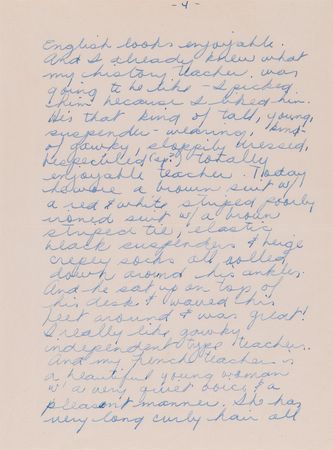 - 4 -
English looks enjoyable.
And I already knew what
my history teacher was
going to be like - I picked
him because I liked him.
He's that kind of tall, young,
suspender - wearing, kind-
of gawky, sloppily dressed,
bespectiled (sp?) totally
enjoyable teacher. Today
he wore a brown suit w/
a red & white striped poorly
ironed suit w/ a brown
striped tie, elastic
black suspenders & beige
crepey socks all rolled
down around his ankles.
And he sat up on top of
his desk & waved his
feet around & was great!
I really like gawky
independent type teachers.
And my french teacher is
a beautiful young woman
w/ a very quiet voice & a
pleasant manner. She has
very long curly hair all